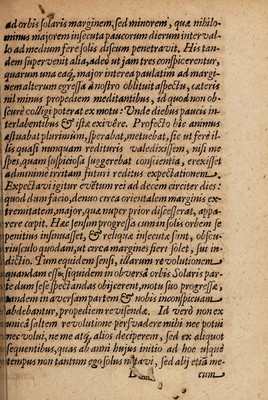 ad orbis solaris marginem, sed minorem, quæ nihilo-
minus majorem insecuta paucorum dierum interval-
lo ad medium fere solis discum penetravit. His tan-
dem supervenit alia, adeò ut jam tres conspicerentur,
quarum una eaq́, major interea paulatim ad margi-
nem alterum egressa à nostro obtuitu aspectu, cæteris
nil minus propediem meditantibus, id quod non ob-
scurè colligi poterat ex motu: Unde diebus paucis in-
terlabentibus & istæ exivêre. Profecto hic animus
æstuabat plurimùm, sperabat, metuebat, sic ut ferè il-
lis quasi nunquam redituris valedixissem, nisi me
spes, quam suspiciosa suggerebat conscientia, erexisset
ad minimè irritam futuri reditus expectationem.
Expectavi igitur evētum rei ad decem circiter dies:
quod dum facio, denuo circa orientalem marginis ex-
tremitatem, major, quæ nuper prior discesserat, appa-
rere cœpit. Hæc sensim progressa cum in solis orbem se
penitius insinuasset, & reliquæ insecutæ sunt, obscu-
riusculo quodam, ut circa margines fieri solet, sui in-
dictio. Tum equidem sensi, illarum revolutionem
quandam esse, siquidem in obversâ orbis Solaris par-
te dum sese spectandas objicerent, motu suo progressæ,
tandem in aversam partem & nobis inconspicuam
abdebantur, propediem revisendæ. Id verò non ex
unicâ saltem revolutione persvadere mihi nec potui
nec volui, ne me atq́, alios deciperem, sed ex aliquot
sequentibus, quas ab anni hujus initio ad hoc usque
tempus non tantum ego solus notavi, sed abj etiā me-
cum